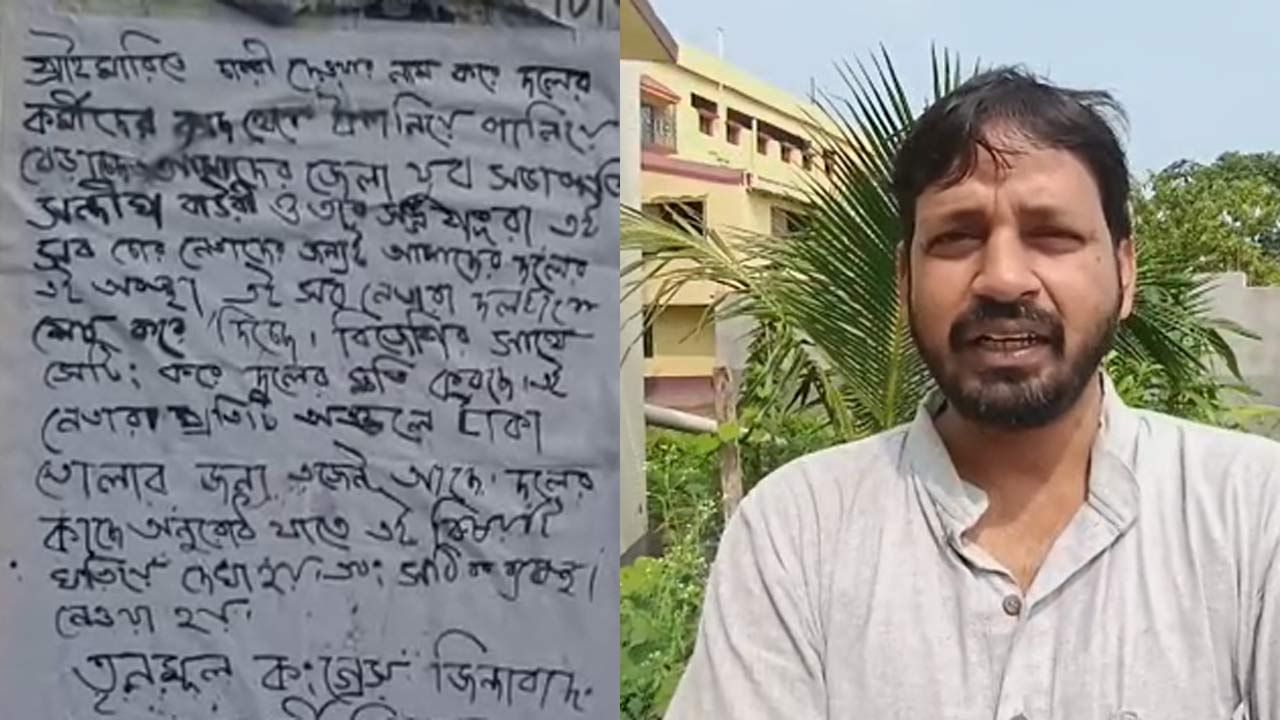 প্রাইমারিতে চাকরী দেওয়ার নাম করে দলের
কর্মীদের কাছ থেকে টাকা নিয়ে পালিয়ে
বেড়াচ্ছে আমাদের জেলা যুব সভাপতি
সন্দীপ বাউরী ও তার সাঙ্গ পাঙ্গরা এই
সব চোর নেতাদের জন্যই আমাদের দলের
এই অবস্থা। এই সব নেতারা দলটাকে
শেষ করে দিচ্ছে। বিজেপির সাথে
সেটিং করে দলের ক্ষতি করছে। এই
নেতারা প্রতিটি অঞ্চলে টাকা
তোলার জন্য এজেন্ট আছে। দলের
কাছে অনুরোধ যাতে এই বিষয়টা
খতিয়ে দেখা হয় এবং সঠিক ব্যবস্থা
নেওয়া হয়।
তৃনমূল কংগ্রেস জিন্দাবাদ।